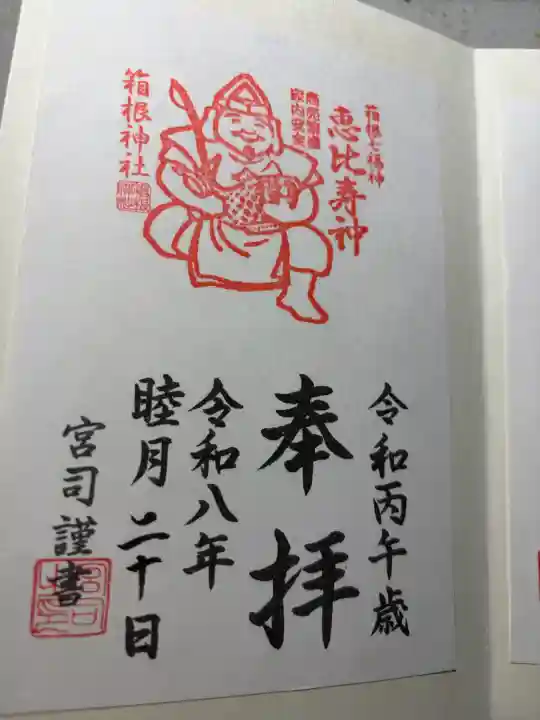 箱根七福神
恵比寿神
商売繁盛
家内安全
箱根神社
令和丙午歳
奉拝
令和八年
睦月二十日
宮司謹書